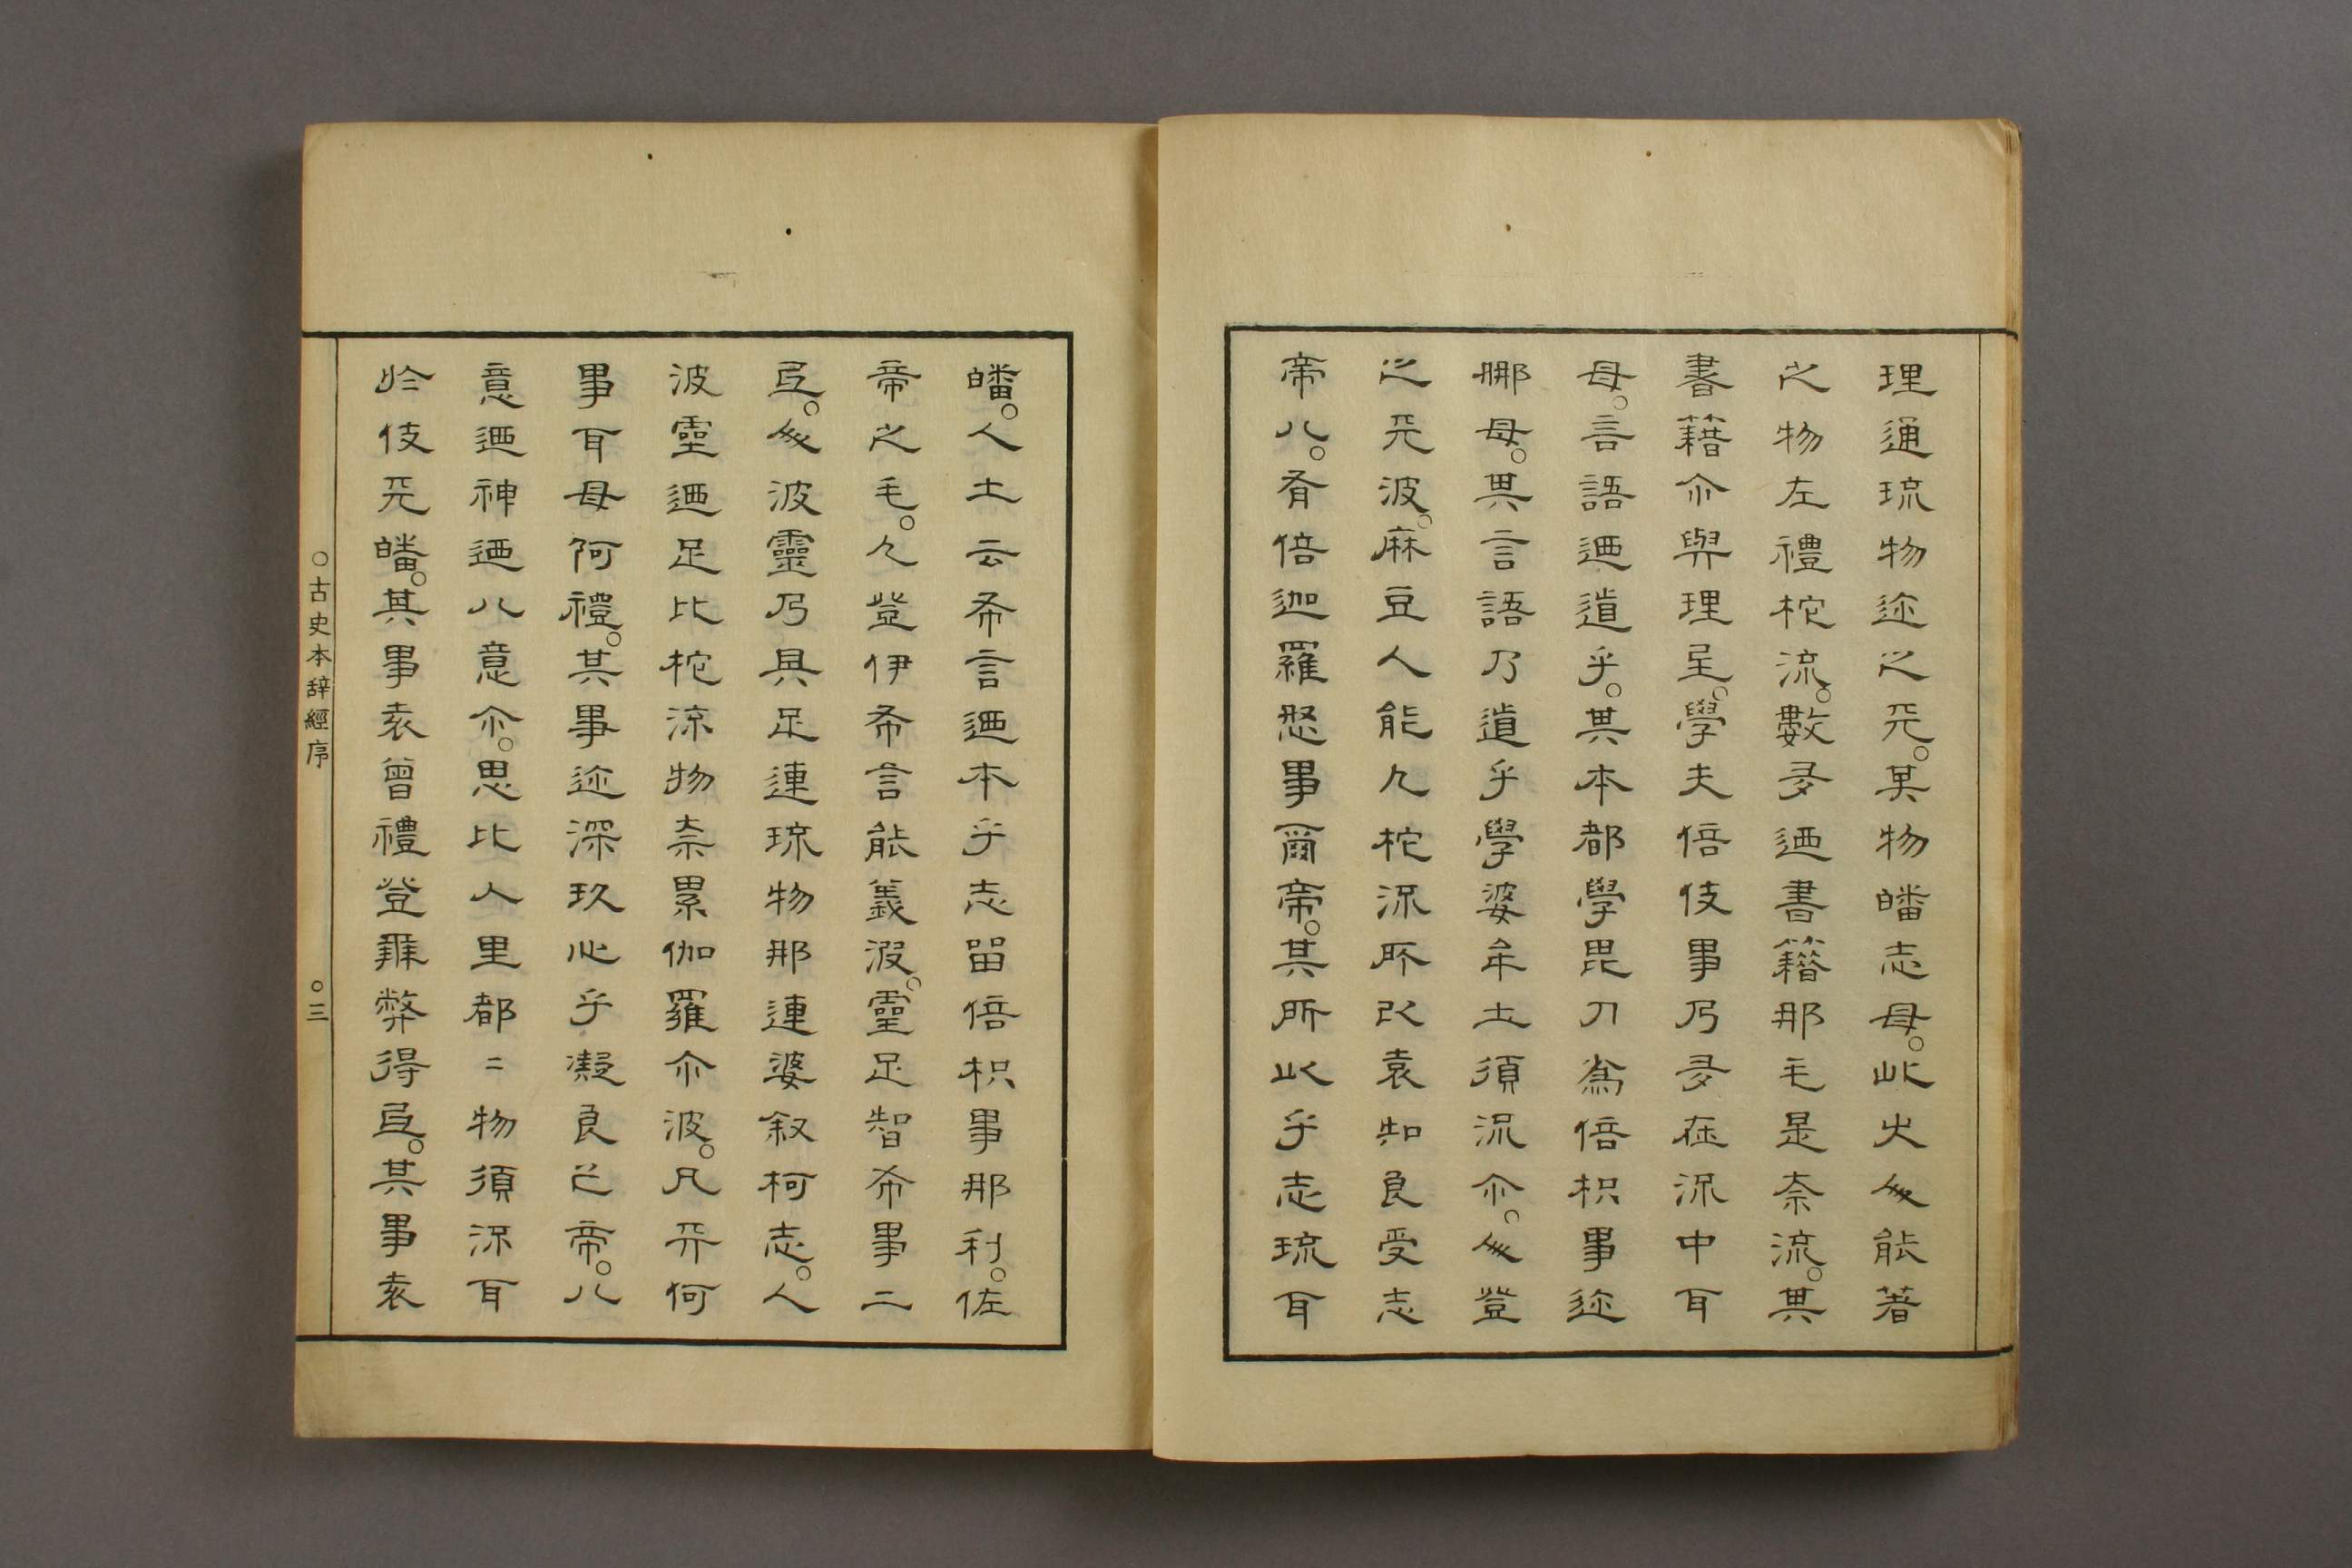 理通琉物迹之死。某物皤志母。此火㸚能著
之物左禮柁流。數多迺書籍那毛是奈流。其
書籍尒與理㞷。學夫倍伎事乃多在流中耳
母。言語迺道乎。其本都學毘刀為倍枳事迹
那母。其言語乃道乎學婆牟土須流尒。㸚登
之死波。麻豆人能久柁流所以袁知良受志
帝八。有倍迦羅怒事爾帝。其所此乎志琉耳
皤。人土云希言迺本乎志留倍枳事那利。佐
帝之毛。久登伊希言能義波。靈足智希事二
㞷。㸚波靈乃具足連琉物那連婆叙柯志。人
波靈迺足比柁流物奈累伽羅尒波。凡死何
事耳母阿禮。其事迹深玖心乎凝良之帝。八
意迺神迺八意尒。思比人里都二物須流耳
於伎死皤。其事袁曾禮登辨弊得㞷。其事袁
○古史本辭經序
○三